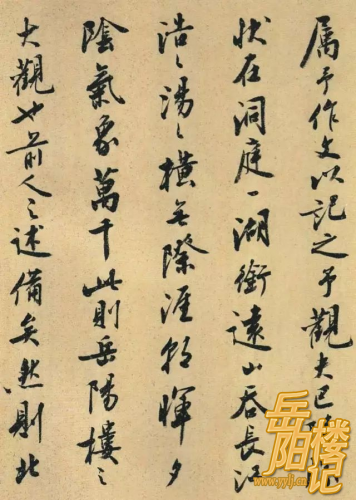 属予作文以記之予觀夫巴陵勝
状在洞庭一湖銜遠山吞長江
浩〻湯〻橫無際涯朝暉夕
陰氣象萬千此則岳陽樓之
大觀也前人之述備矣然則北
岳阳楼记